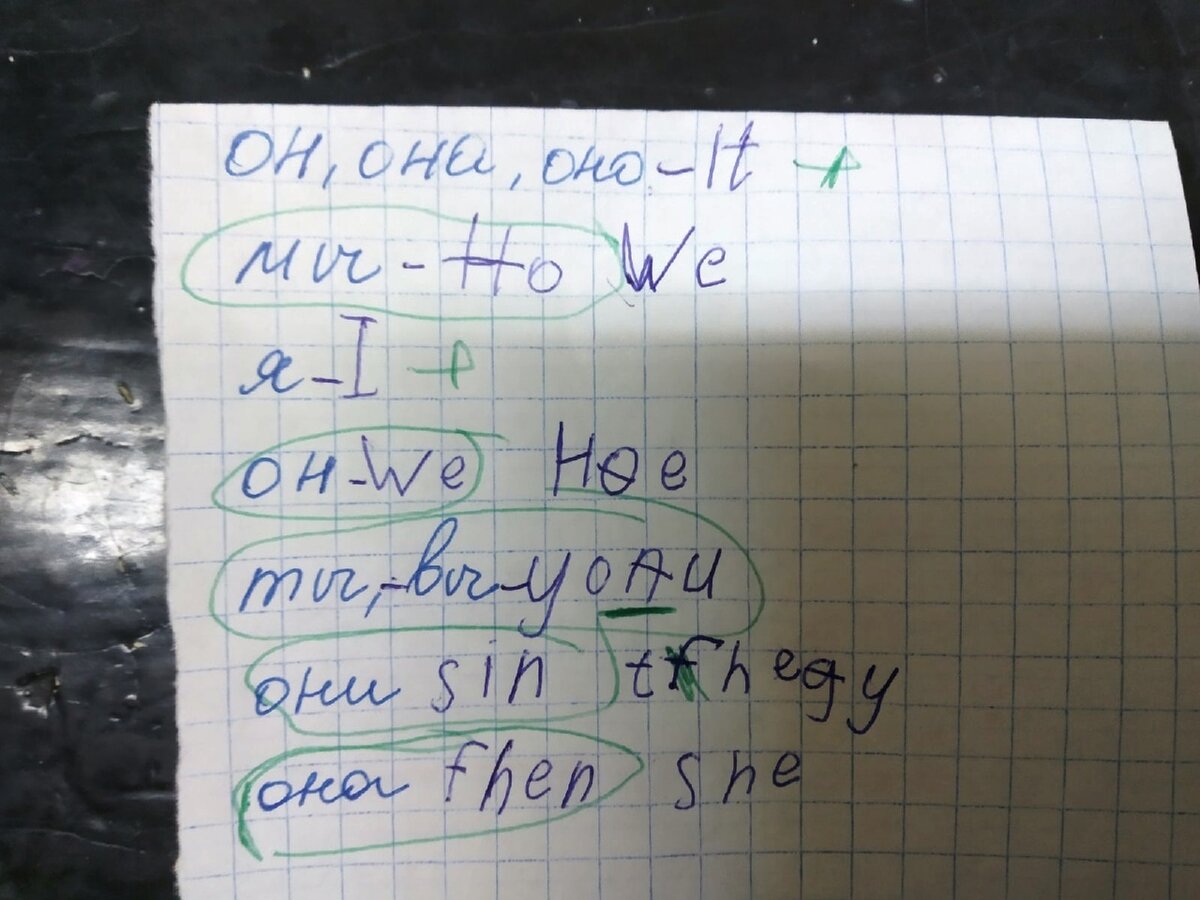 он, она, оно - It +
мы - Ho We
я - I +
он - We Hoe
ты, - вы - yoAu
они sin thegy
она fhen she